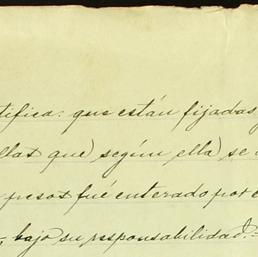 tifica: que están fijadas
llas que según ella se
pesos fué enterado por
, bajo su responsabilidad.=